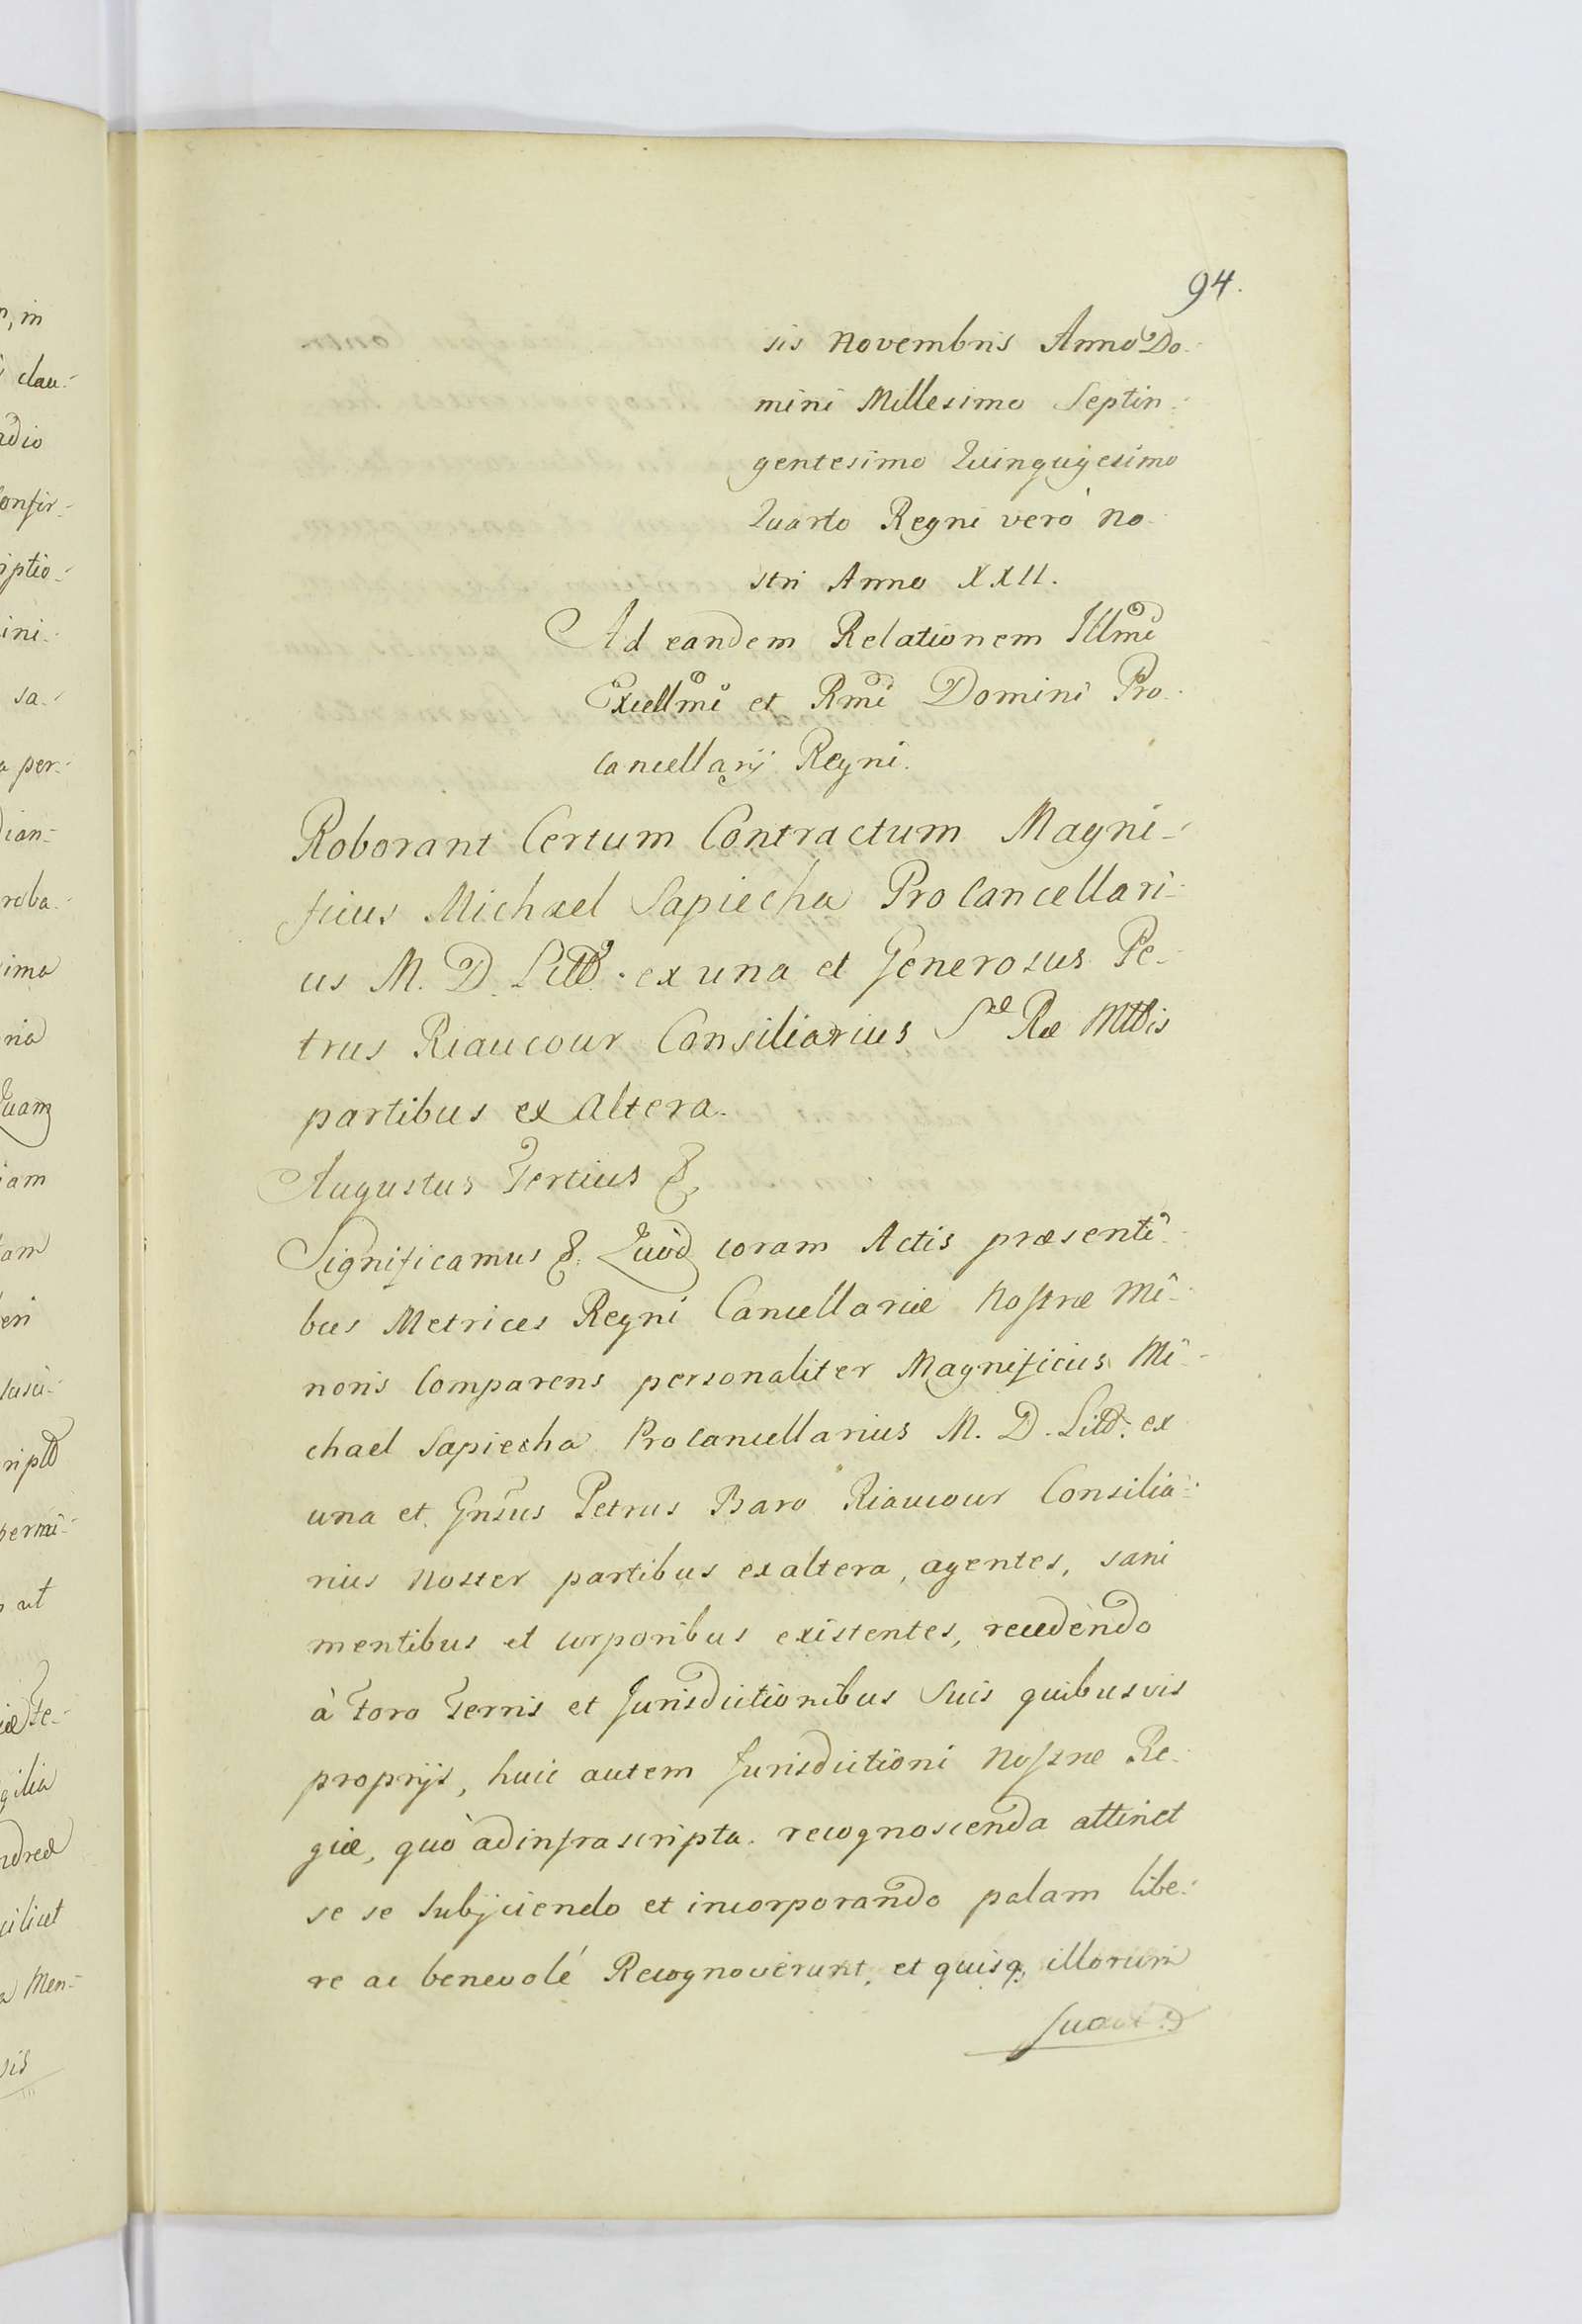 94.
sis Novembris Anno Do-
mini Millesimo Septin-
gentesimo Quinquigesimo
Quarto Regni verò No-
stri Anno XXII.
Ad eandem Relationem Illmi
Excellmi et Rmi Domini Pro-
Cancellarij Regni.
Roborant Certum Contractum Magni-
ficus Michael Sapiecha ProCancellari-
us M. D. Litt. ex una et Generosus Pe-
trus Riaucour Consiliarius Sae Rae Mttis
partibus ex altera.
Augustus Tertius &
Significamus &. Quod coram Actis praesenti-
bus Metrices Regni Cancellariae Nostrae Mi-
noris Comparens personaliter Magnificus Mi-
chael Sapiecha ProCancellarius M. D. Litt. ex
una et Gnsus Petrus Baro Riaucour Consilia-
rius Noster partibus ex altera, agentes, sani
mentibus et corporibus existentes, recedendo
à Foro Terris et Jurisdictionibus Suis quibusvis
proprijs, huic autem Jurisdictioni Nostrae Re-
giae, quò ad infrascripta recognoscenda attinet
se se Subjiciendo et incorporando palam libe-
re ac benevolé Recognoverunt, et quisq, illorum
n, in
clau-
adio
Confir-
riptio-
ini-
sa-
a per-
dian-
roba-
sima
ria
Quam
iam
tam
eri
ripto
permi-
ut
iae Fe-
gilia
ndreae
cilicet
a Men-
sis